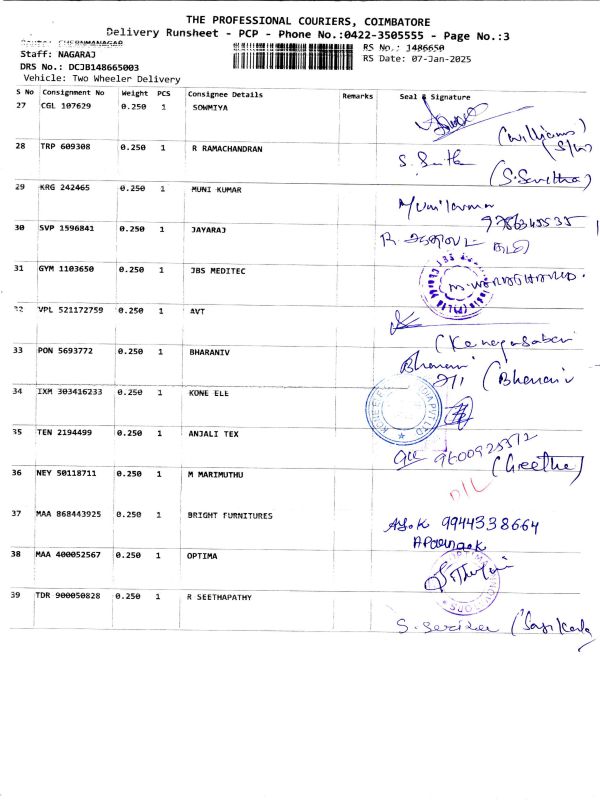 THE PROFESSIONAL COURIERS, COIMBATORE
Delivery Runsheet - PCP - Phone No.:0422-3505555 - Page No.:3
Staff: NAGARAJ RS No.: 1486650
DRS No.: DCJB148665003 RS Date: 07-Jan-2025
Vehicle: Two Wheeler Delivery
S No Consignment No Weight PCS Consignee Details Remarks Seal & Signature
27 CGL 107629 0.250 1 SOWMIYA
(Williams)
S/W
28 TRP 609308 0.250 1 R RAMACHANDRAN
(S.Savitha)
29 KRG 242465 0.250 1 MUNI KUMAR
9786345535
30 SVP 1596841 0.250 1 JAYARAJ
31 GYM 1103650 0.250 1 JBS MEDITEC
32 VPL 521172759 0.250 1 AVT
(Kanagasabai
33 PON 5693772 0.250 1 BHARANIV
Bharani
(Bharaniv
34 IXM 303416233 0.250 1 KONE ELE
35 TEN 2194499 0.250 1 ANJALI TEX
(Geetha)
36 NEY 50118711 0.250 1 M MARIMUTHU
D/L
37 MAA 868443925 0.250 1 BRIGHT FURNITURES
ASok 9944338664
38 MAA 400052567 0.250 1 OPTIMA
39 TDR 900050828 0.250 1 R SEETHAPATHY
(Sasikala